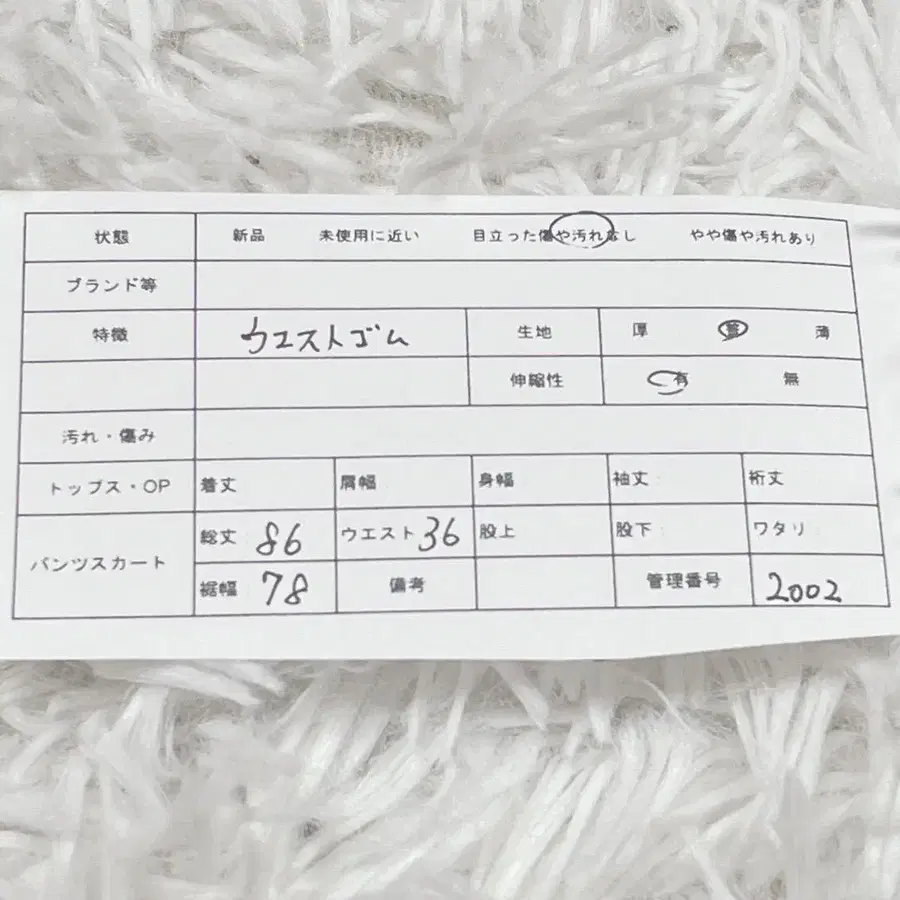 状態 新品 未使用に近い 目立った傷や汚れなし やや傷や汚れあり
ブランド等
特徴 ウエストゴム 生地 厚 普 薄
伸縮性 有 無
汚れ・傷み
トップス・OP 着丈 肩幅 身幅 袖丈 裄丈
パンツスカート 総丈 86 ウエスト 36 股上 股下 ワタリ
裾幅 78 備考 管理番号 2002